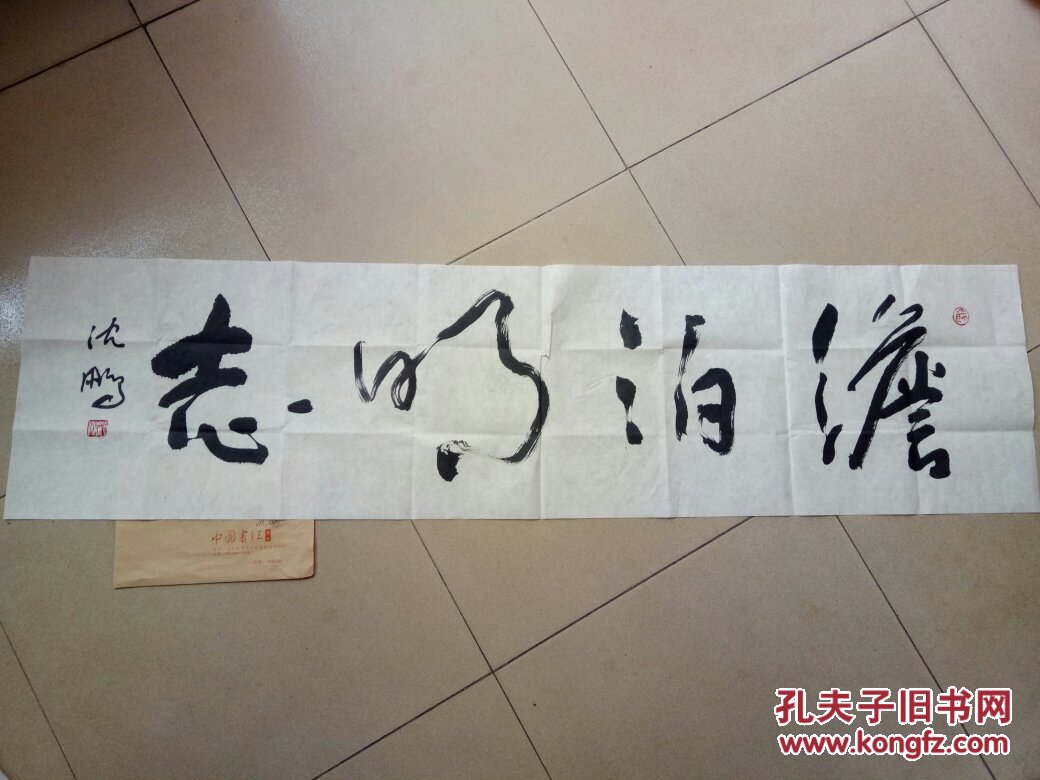 澹泊明志
沈鹏
中国书法
孔夫子旧书网
www.kongfz.com